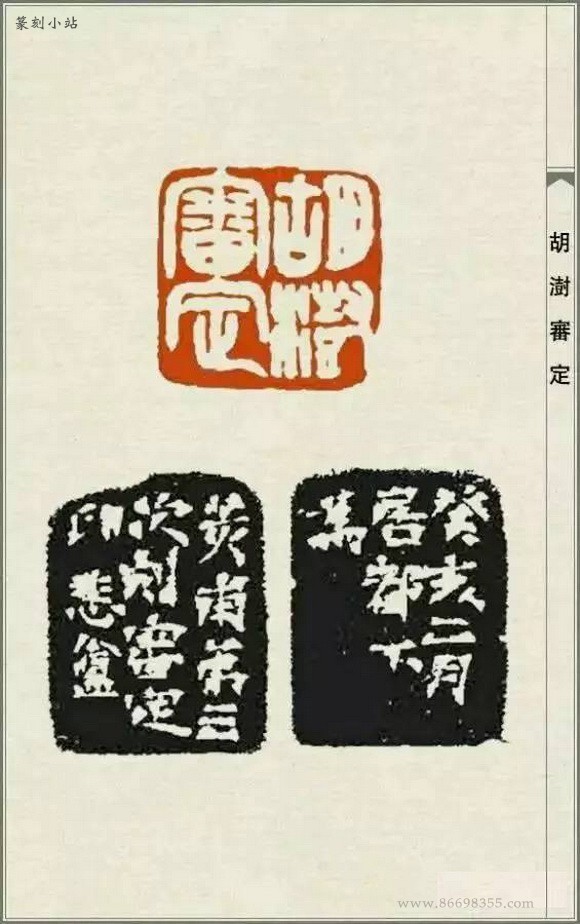 篆刻小站
胡澍
審定
胡澍審定
癸亥二月
客都下
為
荄甫苐三
次刻審定
印悲盦
www.86698355.com